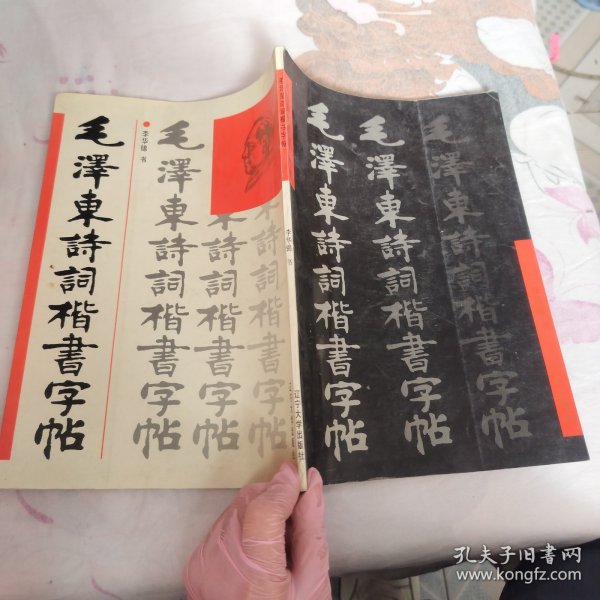 毛澤東詩詞楷書字帖
李华锦 书
毛澤東詩詞楷書字帖
毛澤東詩詞楷書字帖
毛澤東詩詞楷書字帖
李华锦 书
辽宁大学出版社
毛澤東詩詞楷書字帖
毛澤東詩詞楷書字帖
毛澤東詩詞楷書字帖
孔夫子旧书网
www.kongfz.com